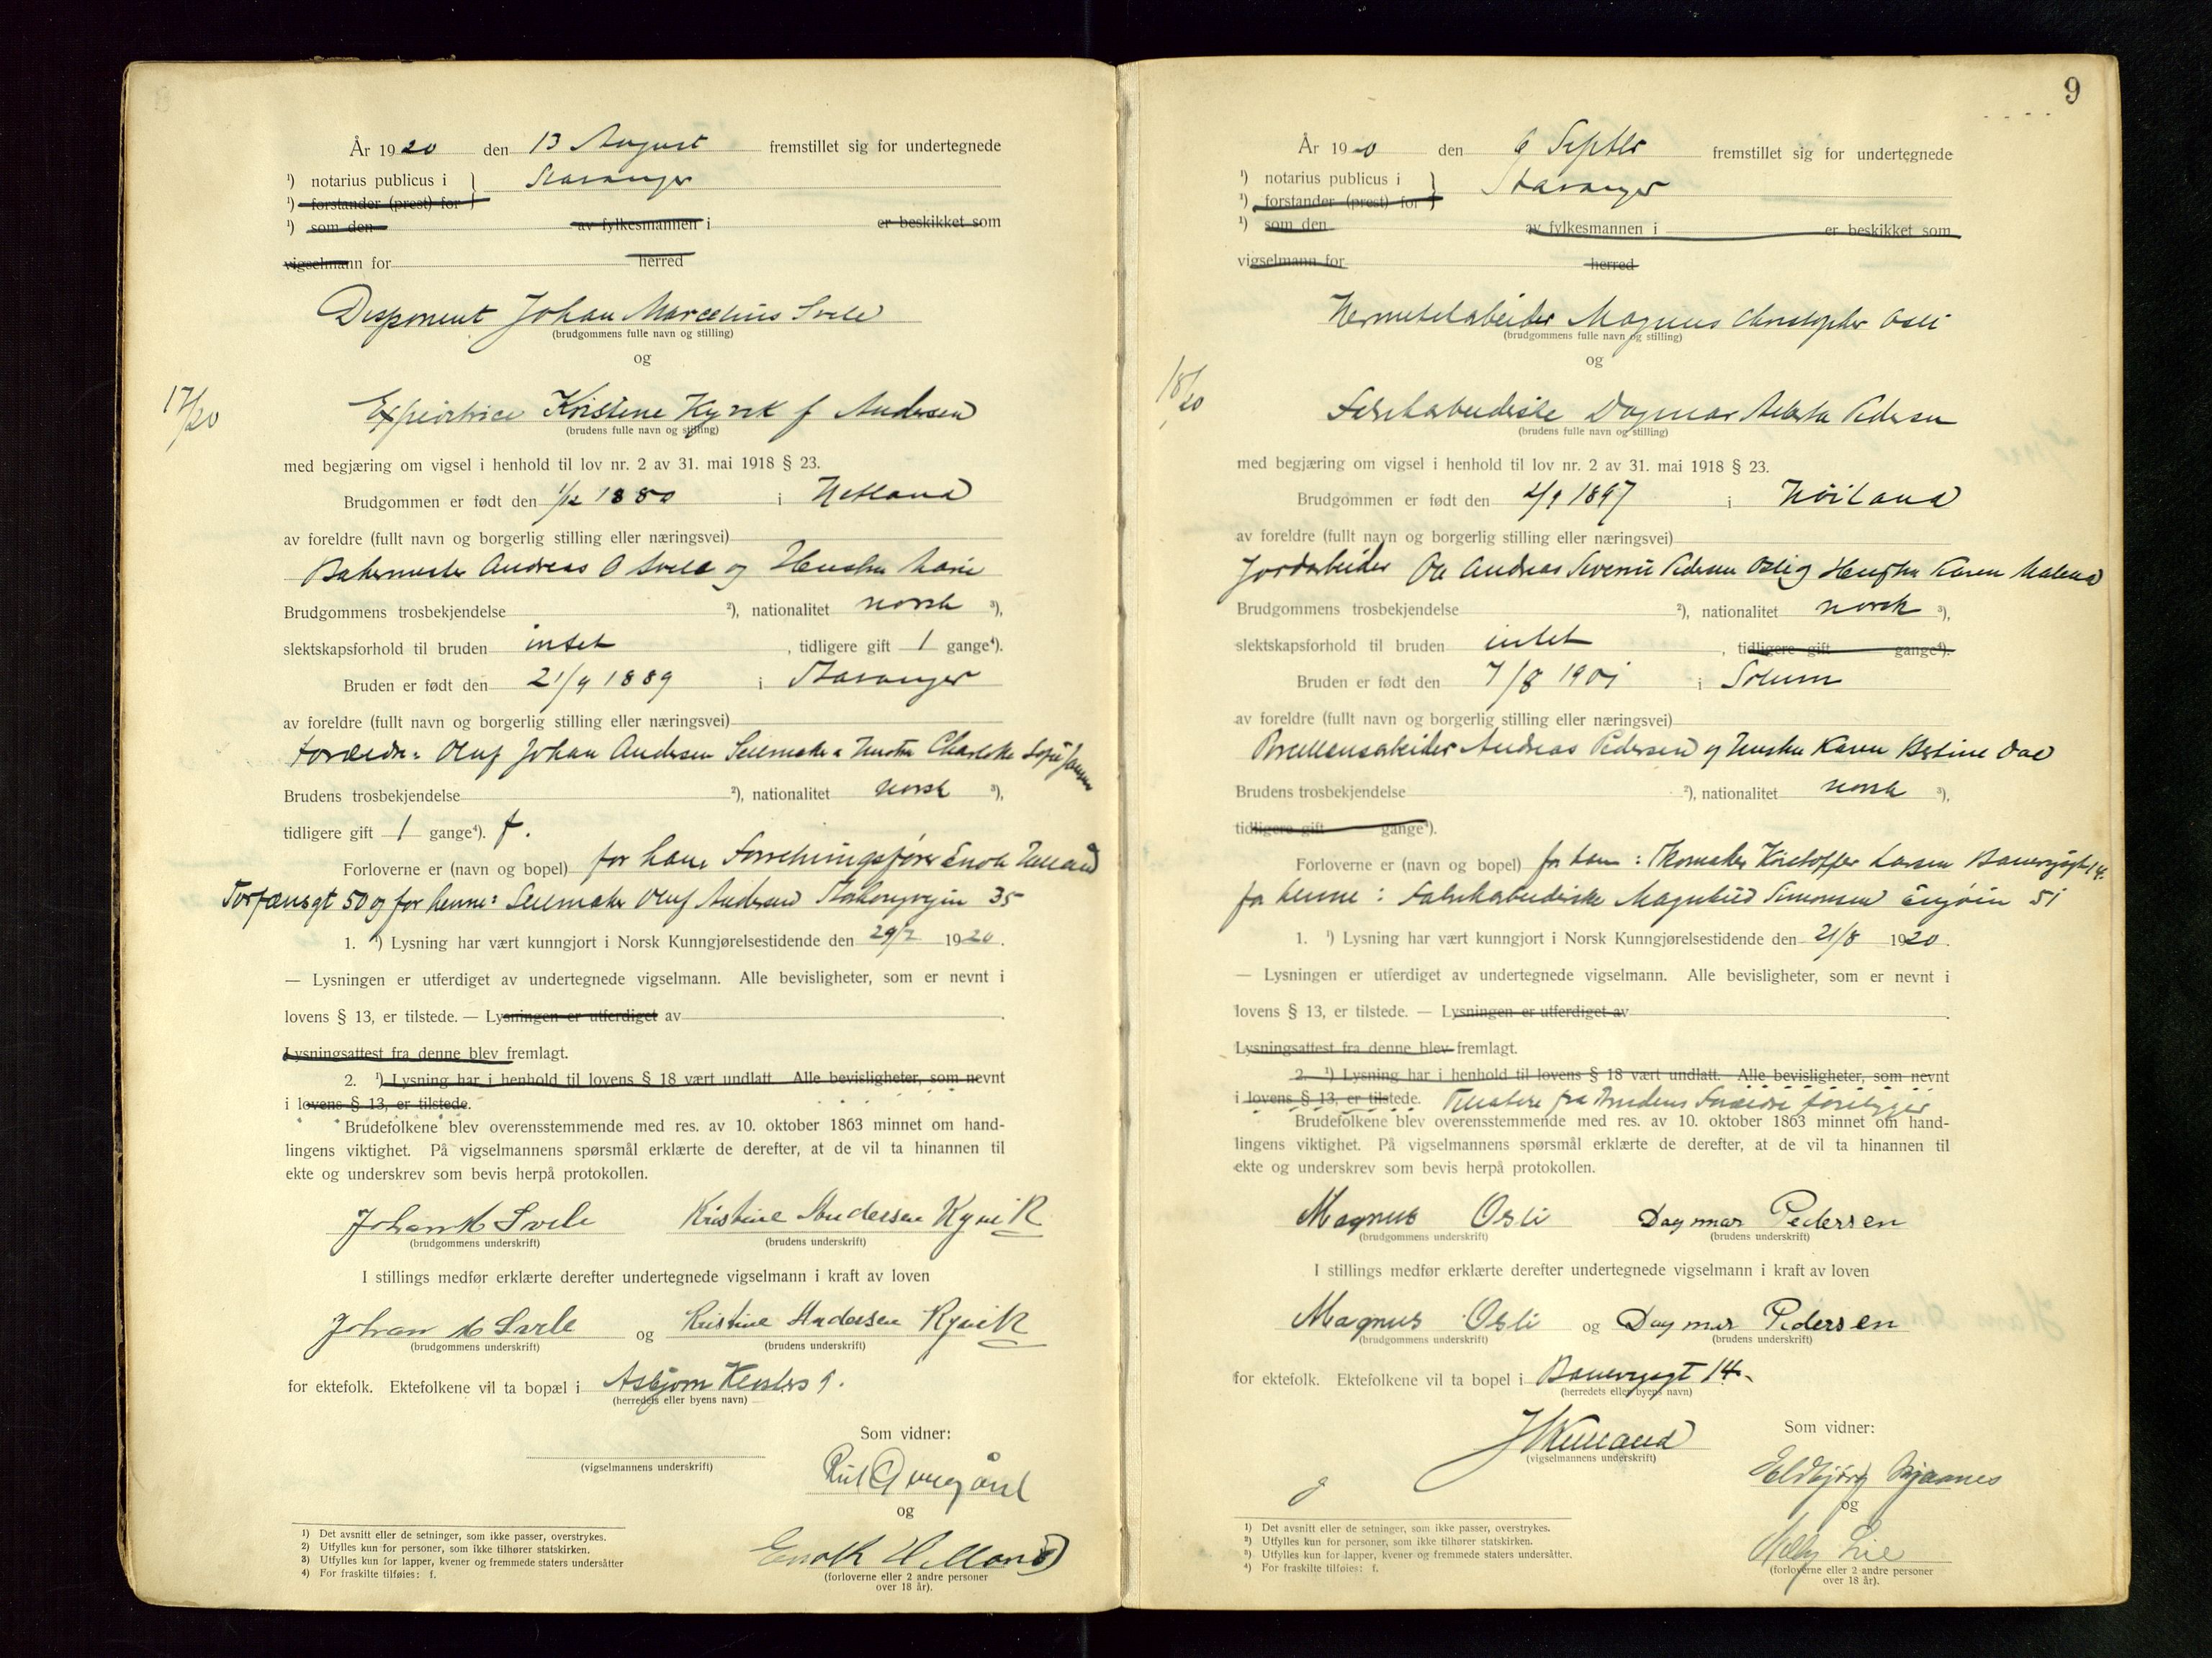 År 1920 den 13 August fremstillet sig for undertegnede
¹) notarius publicus i } Stavanger
¹) forstander (prest) for
¹) som den av fylkesmannen i er beskikket som
vigselmann for herred
Disponent Johan Marcelius Svele
(brudgommens fulle navn og stilling)
og
17/20
Kristine Kyvik f Andersen
(brudens fulle navn og stilling)
med begjæring om vigsel i henhold til lov nr. 2 av 31. mai 1918 § 23.
Brudgommen er født den 1/12 1880 i Hetland
av foreldre (fullt navn og borgerlig stilling eller næringsvei)
Bakermester Andreas O Svele og Hustru Marie
Brudgommens trosbekjendelse ²), nationalitet norsk ³),
slektskapsforhold til bruden intet , tidligere gift 1 gange⁴).
Bruden er født den 21/9 1889 i Stavanger
av foreldre (fullt navn og borgerlig stilling eller næringsvei)
Forældre: Oluf Johan Andersen Seilmaker & Hustru Charlotte Sofie Jansen
Brudens trosbekjendelse ²), nationalitet norsk ³),
tidligere gift 1 gange⁴). f.
Forloverne er (navn og bopel) for ham Forretningsfører Enok Helland
50 og for henne: Seilmaker Oluf Andersen 35
1. ¹) Lysning har vært kunngjort i Norsk Kunngjørelsestidende den 29/7 1920.
— Lysningen er utferdiget av undertegnede vigselmann. Alle bevisligheter, som er nevnt i
lovens § 13, er tilstede. — Lysningen er utferdiget av
Lysningsattest fra denne blev fremlagt.
2. ¹) Lysning har i henhold til lovens § 18 vært undlatt. Alle bevisligheter, som nevnt
i lovens § 13, er tilstede.
Brudefolkene blev overensstemmende med res. av 10. oktober 1863 minnet om hand-
lingens viktighet. På vigselmannens spørsmål erklærte de derefter, at de vil ta hinannen til
ekte og underskrev som bevis herpå protokollen.
Johan M Svele Kristine Andersen Kyvik
(brudgommens underskrift) (brudens underskrift)
I stillings medfør erklærte derefter undertegnede vigselmann i kraft av loven
Johan M Svele og Kristine Andersen Kyvik
(brudgommens underskrift) (brudens underskrift)
for ektefolk. Ektefolkene vil ta bopæl i Asbjørn Klosters 9.
(herredets eller byens navn)
Som vidner:
(vigselmannens underskrift)
og
Enok Helland
(forloverne eller 2 andre personer
over 18 år).
1) Det avsnitt eller de setninger, som ikke passer, overstrykes.
2) Utfylles kun for personer, som ikke tilhører statskirken.
3) Utfylles kun for lapper, kvener og fremmede staters undersåtter
4) For fraskilte tilføies: f.
9
År 1920 den 6 Septbr fremstillet sig for undertegnede
¹) notarius publicus i } Stavanger
¹) forstander (prest) for
¹) som den av fylkesmannen i er beskikket som
vigselmann for herred
Hermetikarbeider Magnus Christopher Osli
(brudgommens fulle navn og stilling)
og
18/20
Fabrikarbeiderske Dagmar Pedersen
(brudens fulle navn og stilling)
med begjæring om vigsel i henhold til lov nr. 2 av 31. mai 1918 § 23.
Brudgommen er født den 2/9 1897 i Høiland
av foreldre (fullt navn og borgerlig stilling eller næringsvei)
Jordarbeider Andreas Severin Pedersen Osli og Hustru Karen Malena
Brudgommens trosbekjendelse ²), nationalitet norsk ³),
slektskapsforhold til bruden intet , tidligere gift gange⁴).
Bruden er født den 7/8 1901 i Solum
av foreldre (fullt navn og borgerlig stilling eller næringsvei)
Porcellensarbeider Andreas Pedersen og Hustru Karen Bertine Dal
Brudens trosbekjendelse ²), nationalitet norsk ³),
tidligere gift gange⁴).
Forloverne er (navn og bopel) for ham: Skomaker Kristoffer Larsen Banevigsgt 14.
for henne: Fabrikarbeiderske Magnhild Simonsen Engøin 51
1. ¹) Lysning har vært kunngjort i Norsk Kunngjørelsestidende den 21/8 1920.
— Lysningen er utferdiget av undertegnede vigselmann. Alle bevisligheter, som er nevnt i
lovens § 13, er tilstede. — Lysningen er utferdiget av
Lysningsattest fra denne blev fremlagt.
2. ¹) Lysning har i henhold til lovens § 18 vært undlatt. Alle bevisligheter, som nevnt
i lovens § 13, er tilstede. Tilladelse fra Brudens Forældre foreligger
Brudefolkene blev overensstemmende med res. av 10. oktober 1863 minnet om hand-
lingens viktighet. På vigselmannens spørsmål erklærte de derefter, at de vil ta hinannen til
ekte og underskrev som bevis herpå protokollen.
Magnus Osli Dagmar Pedersen
(brudgommens underskrift) (brudens underskrift)
I stillings medfør erklærte derefter undertegnede vigselmann i kraft av loven
Magnus Osli og Dagmar Pedersen
(brudgommens underskrift) (brudens underskrift)
for ektefolk. Ektefolkene vil ta bopel i Banevigsgt 14.
(herredets eller byens navn)
Som vidner:
J Kielland
(vigselmannens underskrift)
Eldbjørg Bjaanes
og
Lie
(forloverne eller 2 andre personer
over 18 år).
1) Det avsnitt eller de setninger, som ikke passer, overstrykes.
2) Utfylles kun for personer, som ikke tilhører statskirken.
3) Utfylles kun for lapper, kvener og fremmede staters undersåtter.
4) For fraskilte tilføies: f.